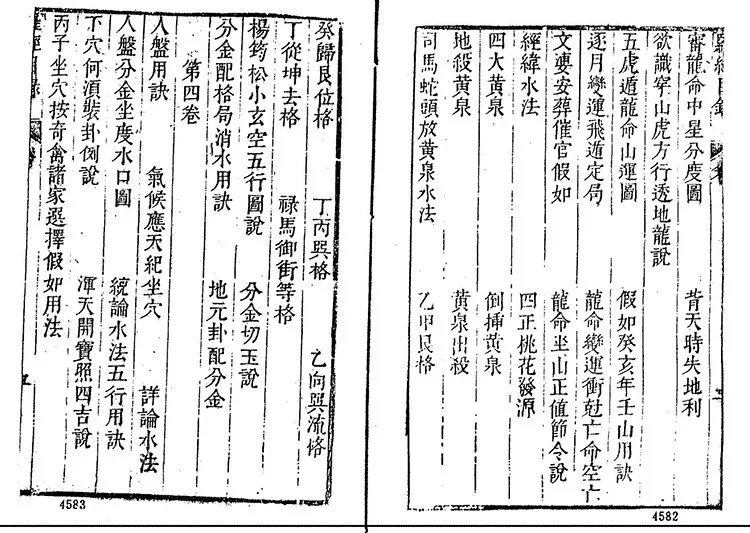 審龍命中星分度圖　背天時失地利
欲識穿山虎方行透地龍說
五虎遁龍命山運圖　假如癸亥年壬山用訣
逐月變運飛遁定局　龍命變運衝尅亡命空亡
文婁安葬催官假如　龍命坐山正值節令說
經緯水法　四正桃花發源
四大黃泉　倒挿黃泉
地殺黃泉　黃泉出殺
司馬蛇頭放黃泉水法　乙甲艮格
4582
癸歸艮位格　丁丙巽格　乙向巽流格
丁從坤去格　祿馬御街等格
楊筠松小玄空五行圖說　分金切玉說
分金配格局消水用訣　地元卦配分金
第四卷
人盤用訣　氣候應天紀坐穴　詳論水法
人盤分金坐度水口圖　統論水法五行用訣
下穴何湏裝卦例說　渾天開寶照四吉說
丙子坐穴按奇禽諸家選擇假如用法
4583